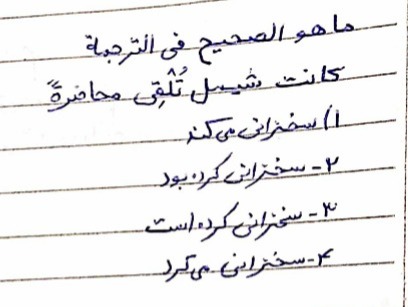 ما هو الصحیح فی الترجمة
کانت شیمل تُلْقِی محاضرةً
۱) سخنرانی می کند
۲- سخنرانی کرده بود
۳- سخنرانی کرده است
۴- سخنرانی می کرد